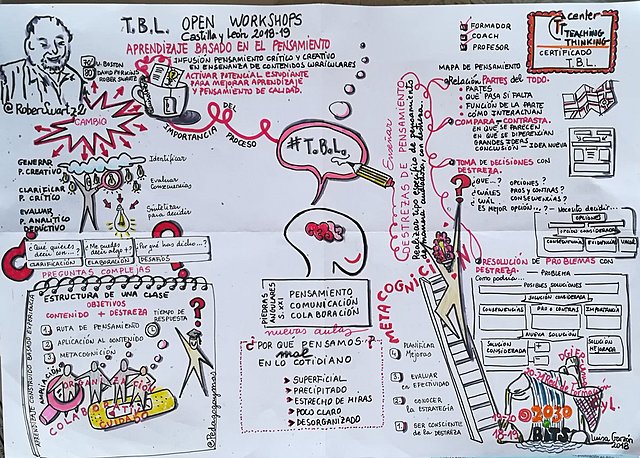 T.B.L. OPEN WORKSHOPS
Castilla y León 2018-19
APRENDIZAJE BASADO EN EL PENSAMIENTO
INFUSIÓN PENSAMIENTO CRÍTICO Y CREATIVO
EN ENSEÑANZA DE CONTENIDOS CURRICULARES
ACTIVAR POTENCIAL ESTUDIANTE
PARA MEJORAR APRENDIZAJE
Y PENSAMIENTO DE CALIDAD.
U. BOSTON
DAVID PERKINS
ROBER SWARTZ
70
80
@RoberSwartz2
CAMBIO
IMPORTANCIA DEL PROCESO
GENERAR
P. CREATIVO
CLARIFICAR
P. CRÍTICO
EVALUAR
P. ANALÍTICO
DEDUCTIVO
Identificar
Evaluar
Consecuencias
Sintetizar
para decidir
¿Qué quieres
decir con...?
CLARIFICACIÓN
¿Me puedes
decir algo +?
ELABORACIÓN
¿Por qué has dicho...?
DESAFÍOS
PREGUNTAS COMPLEJAS
APRENDIZAJE CONSTRUIDO BASADO EXPERIENCIA
ESTRUCTURA DE UNA CLASE
OBJETIVOS
CONTENIDO + DESTREZA
1 RUTA DE PENSAMIENTO
2 APLICACIÓN AL CONTENIDO
3 METACOGNICIÓN
TIEMPO DE
RESPUESTA
COLABORA
CUIDADO
@Pedagogaymas
#T.B.L.
PIEDRAS
ANGULARES
S. XXI
PENSAMIENTO
COMUNICACIÓN
COLABORACIÓN
nuevas aulas
¿POR QUÉ PENSAMOS
mal
EN LO COTIDIANO
?
SUPERFICIAL
PRECIPITADO
ESTRECHO DE MIRAS
POCO CLARO
DESORGANIZADO
Enseñar
DESTREZAS DE PENSAMIENTO
Realizar tipo específico de pensamiento
de manera cuidadosa, con destreza.
METACOGNICIÓN
4 Planificar
Mejoras
3 EVALUAR
LA EFECTIVIDAD
2 CONOCER
LA ESTRATEGIA
1 SER CONSCIENTE
de la DESTREZA
FORMADOR
COACH
PROFESOR
center
TEACHING
THINKING
CERTIFICADO
T.B.L.
MAPA DE PENSAMIENTO
Relación PARTES del TODO.
PARTES
QUÉ PASA SI FALTA
FUNCIÓN DE LA PARTE
CÓMO INTERACTÚAN
COMPARA Y CONTRASTA.
EN QUÉ SE PARECEN
EN QUÉ SE DIFERENCIAN
GRANDES IDEAS
CONCLUSIÓN = IDEA NUEVA
TOMA DE DECISIONES CON
DESTREZA.
¿QUÉ...? OPCIONES ?
¿CUÁLES PROS Y CONTRAS?
¿CUÁL CONSECUENCIAS?
ES MEJOR OPCIÓN...?
Necesito decidir...
OPCIONES
OPCIÓN CONSIDERADA
CONSECUENCIA
EVIDENCIA
VALOR
RESOLUCIÓN DE PROBLEMAS CON
DESTREZA.
Cómo podría...
PROBLEMA
POSIBLES SOLUCIONES
SOLUCIÓN CONSIDERADA
CONSECUENCIAS
PRO o CONTRAS
IMPORTANCIA
NUEVA SOLUCIÓN
SOLUCIÓN
CONSIDERADA
SOLUCIÓN
MEJORADA
19-20
18-19
@2030
BITS
Luisa Garzón
2018